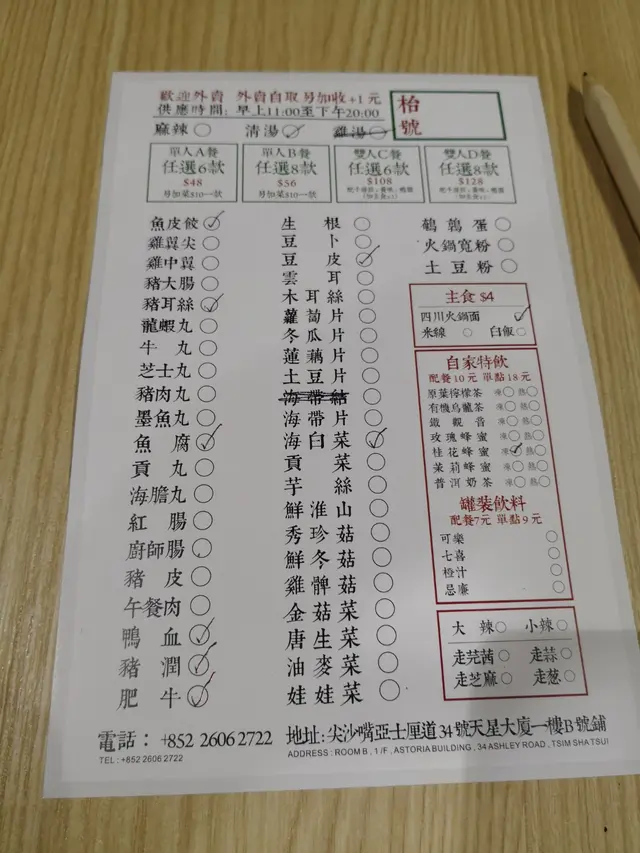 歡迎外賣 外賣自取另加收+1元
供應時間：早上11:00至下午20:00
枱號
麻辣 清湯 雞湯
單人A餐
任選6款
$48
另加菜$10一款
單人B餐
任選8款
$56
另加菜$10一款
雙人C餐
任選6款
$108
雙人D餐
任選8款
$128
魚皮餃
雞翼尖
雞中翼
豬大腸
豬耳絲
龍蝦丸
牛丸
芝士丸
豬肉丸
墨魚丸
魚腐
貢丸
海膽丸
紅腸
廚師腸
豬皮
午餐肉
鴨血
豬潤
肥牛
生根
豆卜
豆皮
雲耳
木耳絲
蘿蔔片
冬瓜片
蓮藕片
土豆片
海帶結
海帶片
海白菜
貢菜
芋絲
鮮淮山
秀珍菇
鮮冬菇
雞髀菇
金菇菜
唐生菜
油麥菜
娃娃菜
鵪鶉蛋
火鍋寬粉
土豆粉
主食 $4
四川火鍋面
米線 白飯
自家特飲
配餐10元 單點18元
原葉檸檬茶 凍 熱
有機烏龍茶 凍 熱
鐵觀音 凍 熱
玫瑰蜂蜜 凍 熱
桂花蜂蜜 凍 熱
茉莉蜂蜜 凍 熱
普洱奶茶 凍 熱
罐裝飲料
配餐7元 單點9元
可樂
七喜
橙汁
忌廉
大辣 小辣
走芫茜 走蒜
走芝麻 走葱
電話：+852 2606 2722
TEL : +852 2606 2722
地址：尖沙嘴亞士厘道34號天星大廈一樓B號鋪
ADDRESS : ROOM B , 1 / F , ASTORIA BUILDING , 34 ASHLEY ROAD , TSIM SHA TSUI